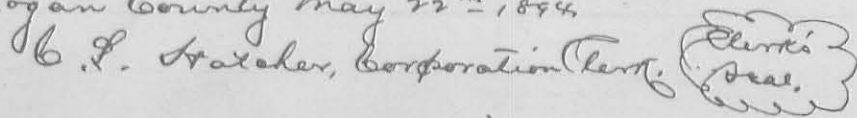 ogan County May 22nd, 1894,
C. P. Hatcher, Corporation Clerk. Clerk's
Seal.